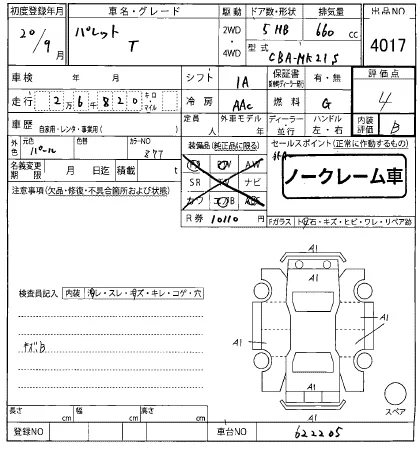 初度登録年月 車名・グレード 駆動 ドア数・形状 排気量 出品NO
20/9月 パレット T 2WD 4WD 5 HB 660 cc 4017
型式 CBA-MK21S
車検 年 月 シフト IA 保証書 有・無 評価点
走行 2万6千820 キロ・マイル 冷房 AAC 燃料 G 4
車歴 自家用・レンタ・事業用( ) 定員 人 外車モデル 年 ディーラー 並行 ハンドル 左・右 内装評価 B
外色 元色 パール 色替 カラーNO 装備品(純正品に限る) セールスポイント(正常に作動するもの)
名義変更期限 月 日迄 積載 t SR ナビ ノークレーム車
注意事項(欠品・修復・不具合箇所および状態) R券 10110 Fガラス
A1
A1
検査員記入 内装
A1
A1
キズ,B
A1
スペア
長さ cm 幅 cm 高さ cm
登録NO 車台NO 622205